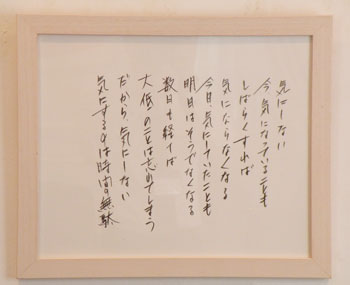 気にしない
今、気になっていることも
しばらくすれば
気にならなくなる
今日、気にしていたことも
明日はそうでなくなる
数日も経てば
大低のことは忘れてしまう
だから、気にしない
気にするのは時間の無駄